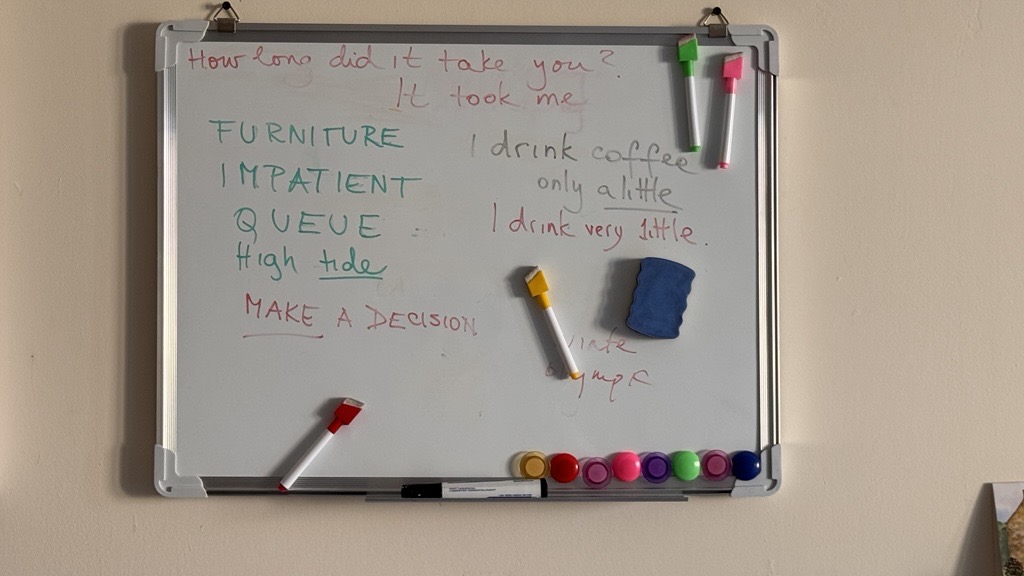 How long did it take you?
It took me
FURNITURE
IMPATIENT
QUEUE
High tide
MAKE A DECISION
I drink coffee
only a little
I drink very little.